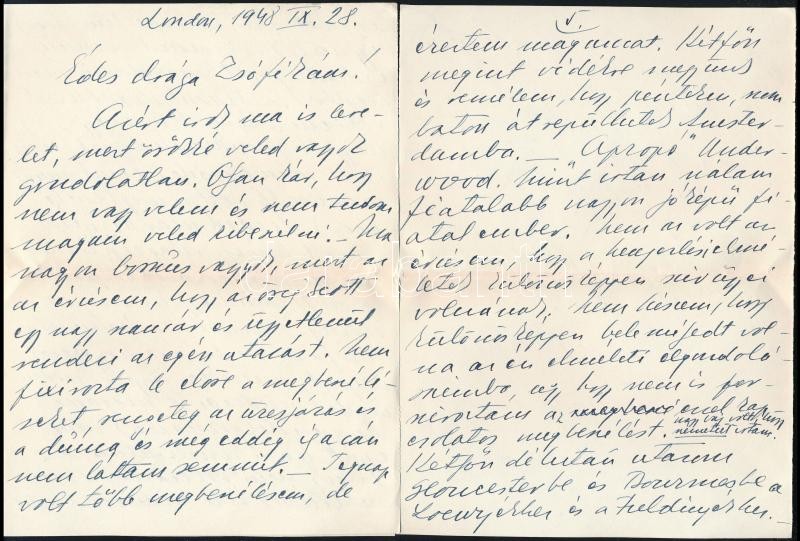 London, 1948 IX. 28.
Édes drága Zsófikám!
Azért írok ma is leve-
let, mert örökké veled vagyok
gondolatban. Olyan kár, hogy
nem vagy velem és nem tudom
magam veled kibeszélni. – Ma
nagyon bosszús vagyok, mert az
az érzésem, hogy az öreg Scott
egy nagy szamár és ügyetlenül
rendezi az egész utazást. Nem
fixírozta le előre a megbeszélé-
seket rengeteg az üresjárás és
a dümög és még eddig igazán
nem láttam semmit. – Tegnap
volt több megbeszélésem, de
5.
éreztem magamat. Hétfőn
megint vidékre megyünk
és remélem, hogy pénteken, szom-
baton át repülhetek Amster-
damba. – Apropó "Under-
wood". Mint írtam nálam
fiatalabb nagyon jóképű fi-
atal ember. Nem az volt az
érzésem, hogy a hengerlési elmé-
letek különösképpen szívügyei
volnának. Nem hiszem, hogy
különösképpen bele mélyedt vol-
na az én elméleti elgondolá-
saimba, úgy hogy nem is for-
szíroztam az ezzel kap-
csolatos megbeszélést.
németül írtam.
Hétfőn délután utazom
Gloucesterbe és
Loewyékhez és a Fieldingékhez. –